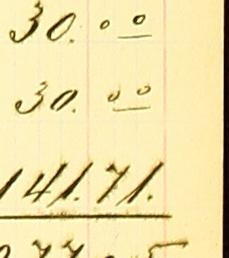 30. 00
30. 00
141.71.